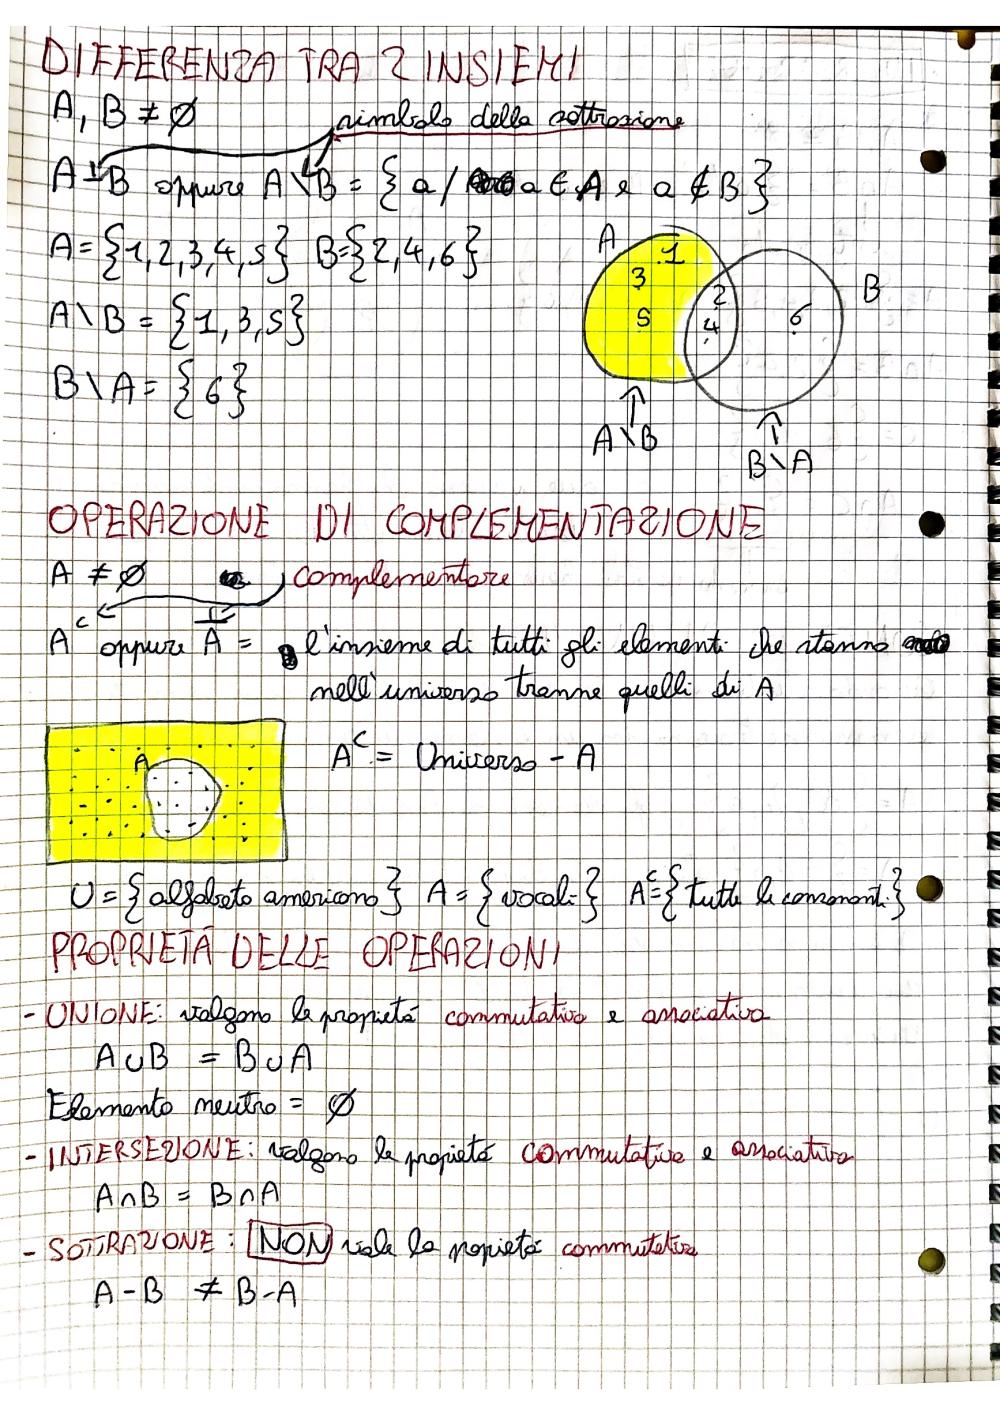 DIFFERENZA TRA 2 INSIEMI
A, B ≠ ∅
simbolo della sottrazione
A - B oppure A \ B = { a / a ∈ A e a ∉ B }
A = {1, 2, 3, 4, 5} B = {2, 4, 6}
A \ B = {1, 3, 5}
B \ A = {6}
A
1
3
2
B
5
4
6
A \ B
B \ A
OPERAZIONE DI COMPLEMENTAZIONE
A ≠ ∅
complementare
Aᶜ oppure A̅ = l'insieme di tutti gli elementi che stanno
nell'universo tranne quelli di A
A
Aᶜ = Universo - A
U = {alfabeto americano} A = {vocali} Aᶜ = {tutte le consonanti}
PROPRIETÀ DELLE OPERAZIONI
- UNIONE: valgono le proprietà commutativa e associativa
A ∪ B = B ∪ A
Elemento neutro = ∅
- INTERSEZIONE: valgono le propietà commutativa e associativa
A ∩ B = B ∩ A
- SOTTRAZIONE: NON vale la propietà commutativa
A - B ≠ B - A